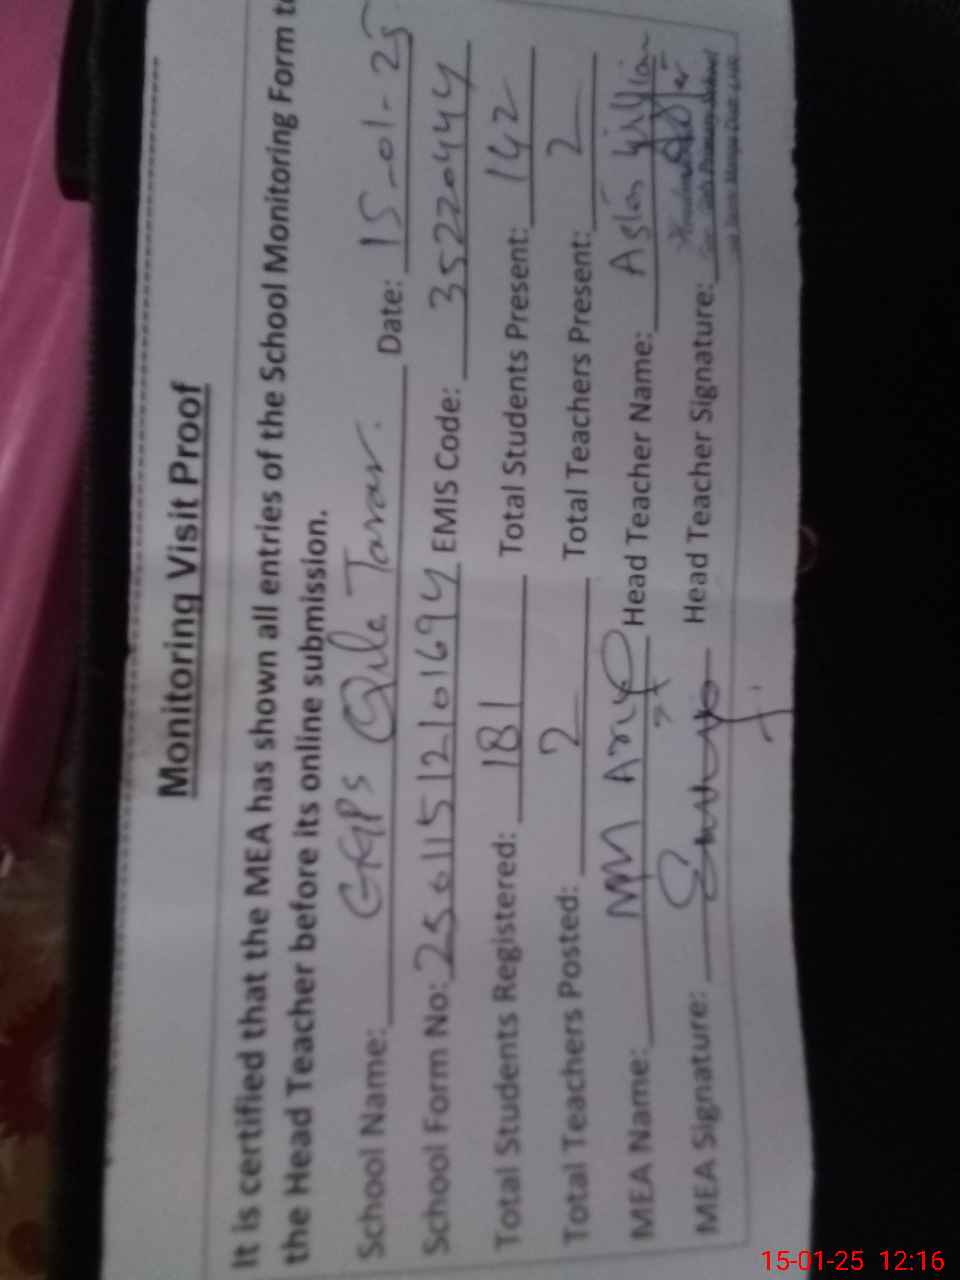 Monitoring Visit Proof
It is certified that the MEA has shown all entries of the School Monitoring Form to
the Head Teacher before its online submission.
School Name: GGPS Qila Tarar. Date: 15-01-25
School Form No: 25011512101694 EMIS Code: 35220444
Total Students Registered: 181 Total Students Present: 142
Total Teachers Posted: 2 Total Teachers Present: 2
MEA Name: Head Teacher Name:
MEA Signature: Head Teacher Signature:
15-01-25 12:16